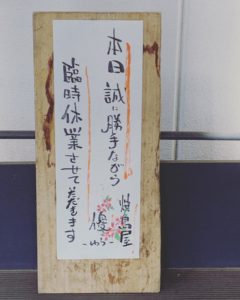 本日誠に勝手ながら
臨時休業させて頂きます
焼鳥屋
優
-ゆう-